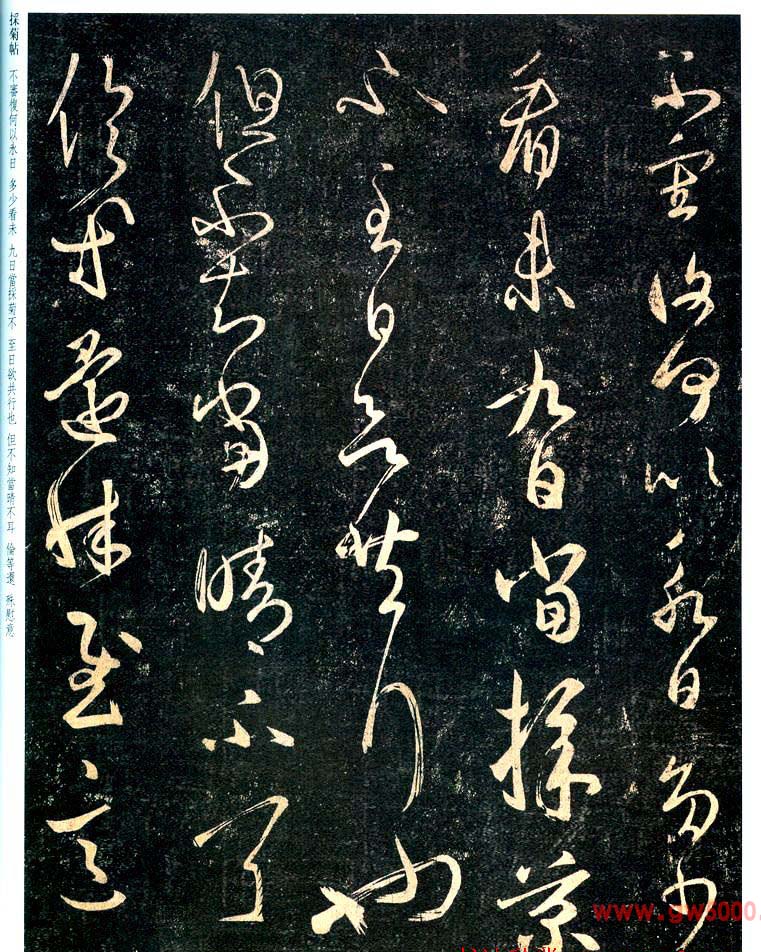 不審復何以永日多少
看未九日當採菊
不至日欲共行也
但不知當晴不耳
倫等還殊慰意
採菊帖 不審復何以永日 多少看未 九日當採菊不 至日欲共行也 但不知當晴不耳 倫等還 殊慰意
www.gw5000.